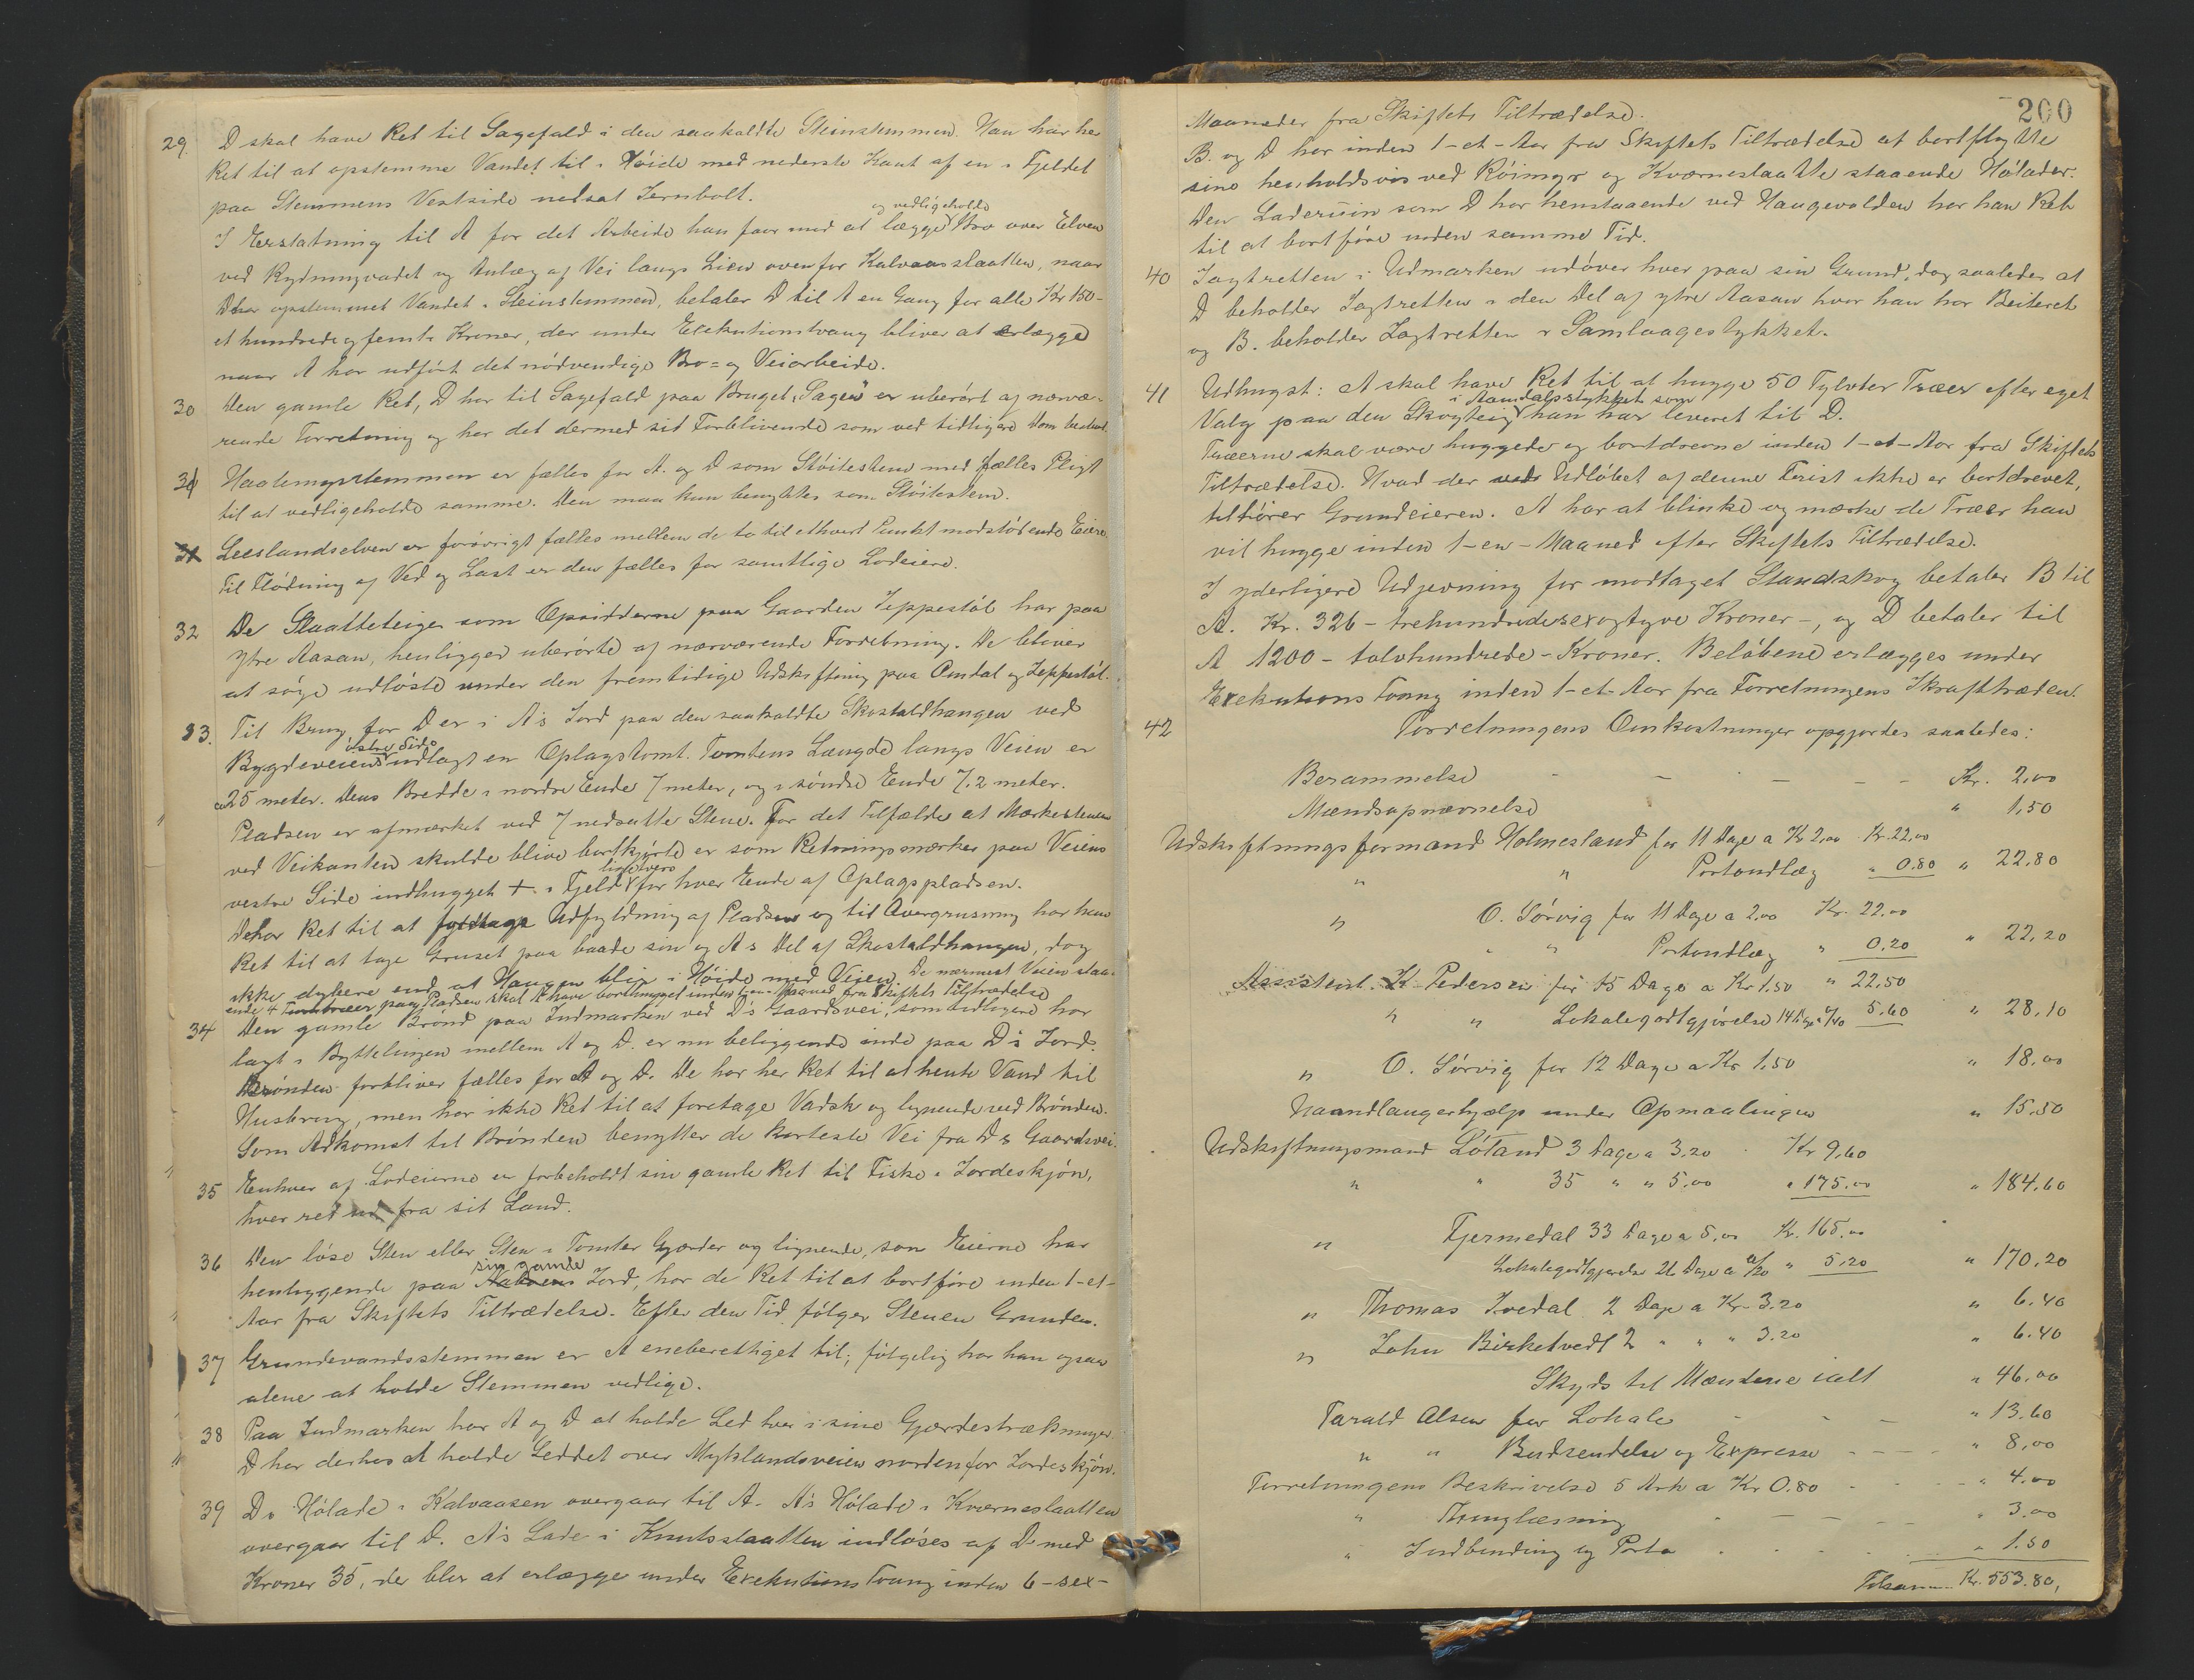 29. D skal have Ret til Sagefald i den saakaldte Steinstemmen. Han har her
Ret til at opstemme Vandet til i Høide med nederste Kant af en i Fjeldet
paa Stemmens Vestside nedsat Jernbolt.
I Erstatning til A for det Arbeide han faar med at lægge og vedligeholde Bro over Elven
ved Rydningvadet og Anlæg af Vei langs Lien ovenfor Kalvaasslaatten, naar
D har opstemmet Vandet i Steinstemmen, betaler D til A en Gang for alle Kr 150-
et hundrede og femti Kroner, der under Exekutionstvang bliver at erlægge
naar A har udført det nødvendige Bro= og Veiarbeide.
30 Den gamle Ret, D har til Sagefald paa Bruget "Sagen" er uberørt af nærvæ-
rende Forretning og har det dermed sit Forblivende som ved tidligere Dom bestemt.
31 Haalemyrstemmen er fælles for A. og D som Støitestem med fælles Pligt
til at vedligeholde samme. Den maa kun benyttes som Støitestem.
31 Leeslandselven er forøvrigt fælles mellem de to til ethvert Punkt modstøtende Eiere.
Til Flødning af Ved og Last er den fælles for samtlige Lodeiere.
32 De Slaatteteiger som Opsidderne paa Gaarden Jeppestøl har paa
Ytre Aasan, henligger uberørte af nærværende Forretning. De bliver
at søge udløste under den fremtidige Udskiftning paa Omdal og Jeppestøl.
33. Til Brug for D er i A's Jord paa den saakaldte Skostaldhaugen ved
Bygdeveiens østre Side udlagt en Oplagstomt. Tomtens Længde langs Veien er
ca 25 meter. Dens Bredde i nordre Ende 7 meter, og i søndre Ende 7,2 meter.
Pladsen er afmærket ved 7 nedsatte Stene. For det Tilfælde at Mærkestenene
ved Veikanten skulde blive bortkjørte er som Retningsmærker paa Veiens
vestre Side indhugget + i Fjeld lige tvers for hver Ende af Oplagspladsen.
D har Ret til at foretage Udfyldning af Pladsen og til Overgrusning har han
Ret til at tage Gruset paa baade sin og A s Del af Skostaldhaugen, dog
ikke dybere end at Haugen bliver i Høide med Veien. De nærmest Veien staa-
ende 4 Furutrær paa Pladsen skal A have borthugget inden 1-en- Maaned fra Skiftets Tiltrædelse
34 Den gamle Brønd paa Indmarken ved D's Gaardsvei, som tidligere har
lagt i Byttelinjen mellem A og D. er nu beliggende inde paa D's Jord.
Brønden forbliver fælles for A og D. De har her Ret til at hente Vand til
Husbrug, men har ikke Ret til at foretage Vadsk og lignende ved Brønden.
Som Adkomst til Brønden benytter de korteste Vei fra D s Gaardsvei.
35 Enhver af Lodeierne er forbeholdt sin gamle Ret til Fiske i Jordeskjøn,
hver ret ud fra sit Land.
36 Den løse Sten eller Sten i Tomter Gjærder og lignende, som Eierne har
henliggende paa sin gamle Jord, har de Ret til at bortføre inden 1-et-
Aar fra Skiftets Tiltrædelse. Efter den Tid følger Stenen Grunden.
37 Grundevandsstemmen er A eneberettiget til; følgelig har han ogsaa
alene at holde Stemmen vedlige.
38 Paa Indmarken har A og D at holde Led hver i sine Gjærdestrækninger.
D har derhos at holde Leddet over Myklandsveien nordenfor Jordeskjøn.
39 Ds Hølade i Kalvaasen overgaar til A. A's Hølade i Kværneslaatten
overgaar til D. A's Lade i Knutsslaatten indløses af D med
Kroner 35, der blir at erlægge under Exekutions Tvang inden 6-sex-
200
Maaneder fra Skiftets Tiltrædelse.
B. og D har inden 1-et-Aar fra Skiftets Tiltrædelse at bortflytte
sine henholdsvis ved Röimyr og Kværneslaatte staaende Hølader.
Den Laderuin som D har henstaaende ved Haugevolden har han Ret
til at bortføre inden samme Tid.
40 Jagtretten i Udmarken udøver hver paa sin Grund, dog saaledes at
D beholder Jagtretten i den Del af ytre Aasan hvor han har Beiteret
og B. beholder Jagtretten i Samlaagestykket.
41 Udhugst: A skal have Ret til at hugge 50 Tylvter Træer efter eget
Valg paa den Skogteig i Aamdalsstykket som han har leveret til D.
Træerne skal være huggede og bortdrevne inden 1-et-Aar fra Skiftets
Tiltrædelse. Hvad der ved Udløbet af denne Frist ikke er bortdrevet,
tilhører Grundeieren. A har at blinke og mærke de Træer han
vil hugge inden 1-en-Maaned efter Skiftets Tiltrædelse.
I yderligere Udjevning for modtaget Standskog betaler B til
A. Kr. 326 - trehundredesexogtyve Kroner -, og D betaler til
A 1200 - tolvhundrede - Kroner. Beløbene erlægges under
Exekutions Tvang inden 1-et-Aar fra Forretningens Ikrafttræden.
42 Forretningens Omkostninger opgjordes saaledes:
Berammelse - - - - Kr. 2,00
Mændsopnævnelse " 1,50
Udskiftningsformand Holmesland for 11 Dage a Kr 2,00 Kr. 22,00
" " Portoudlæg " 0.80 " 22,80
" O. Sørvig for 11 Dage a 2,00 Kr. 22,00
" " Portoudlæg " 0,20 " 22,20
Assistent K. Pedersen for 15 Dage a Kr 1,50 " 22,50
" " Lokalegodtgjørelse 14 Dage a 0/40 5,60 " 28,10
" O. Sørvig for 12 Dage a Kr 1,50 " 18,00
Haandlangerhjælp under Opmaalingen " 15,50
Udskiftningsmand Løland 3 Dage a 3,20 Kr 9,60
" " 35 " " 5,00 " 175,00 " 184,60
" Fjermedal 33 Dage a 5,00 Kr. 165,00
Lokalegodtgjørelse 26 Dage a 0/20 " 5,20 " 170,20
" Thomas Ivedal 2 Dage a Kr. 3.20 " 6.40
" John Birketvedt 2 " " " 3.20 " 6.40
Skyds til Mændene ialt " 46,00
Tarald Olsen for Lokale - - - " 13,60
" " Budsendelse og Expresse - - - - " 8,00
Forretningens Beskrivelse 5 Ark a Kr 0.80 - - - - " 4.00
" Thinglæsning - - - - " 3.00
" Indbinding og Porto - - - - " 1.50
Tilsammen Kr. 553.80,